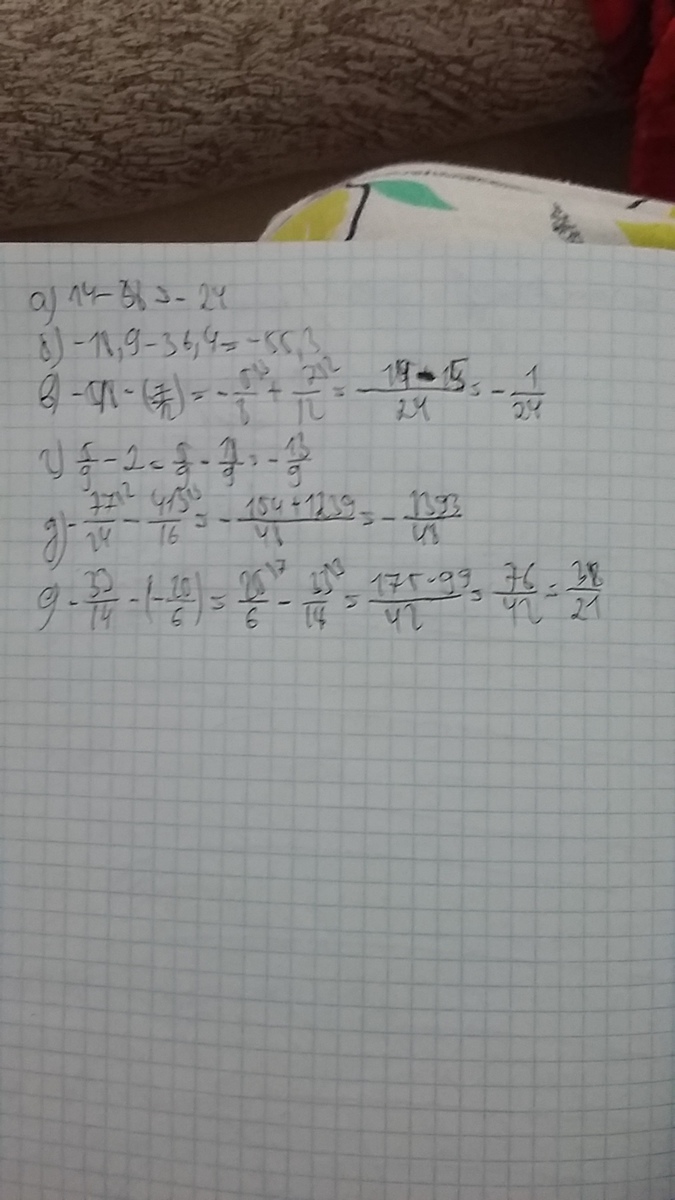 а) 14 - 38 = - 24
б) -18,9 - 36,4 = -55,3
в) -5/8 - (-7/12) = -5/8 + 7/12 = 14-15/24 = -1/24
г) 5/9 - 2 = 5/9 - = -13/9
д) -77/24 - 413/16 = -154+1239/48 = -1393/48
-33/14 - (-25/6) = 25/6 - 33/14 = 175-99/42 = 76/42 = 38/21